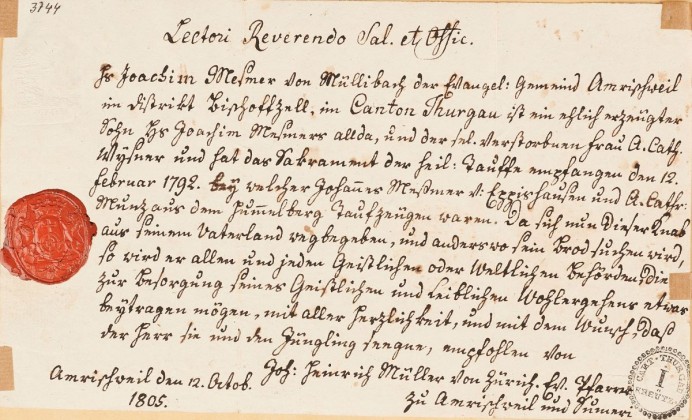 3744
Lectori Reverendo Sal. et Offic.
Hs Joachim Meßmer von Müllibach der Evangel: Gemeind Amrischweil
im Distrikt Bischoffzell, im Canton Thurgau ist ein ehlich erzeugter
Sohn Hs Joachim Meßmers allda, und der sel. verstorbnen Frau A. Cath.
Wyßner und hat das Sakrament der heil: Tauffe empfangen den 12.
Februar 1792. bey welcher Johannes Meßmer v: Eppishausen und A. Cathr:
Munz aus dem Hummelberg Taufzeugen waren. Da sich nun dieser Knab
aus seinem Vaterland wegbegeben, und anderswo sein Brod suchen wird,
so wird er allen und jeden Geistlichen oder Weltlichen Behörden, die
zur Besorgung seines Geistlichen und Leiblichen Wohlergehens etwas
beytragen mögen, mit aller Herzlichkeit, und mit dem Wunsch, daß
der Herr sie und den Jüngling seegne, empfohlen von
Joh: Heinrich Müller von Zürich. Ev. Pfarrer
Amrischweil den 12. Octob. zu Amrischweil und Sumeri.
1805.